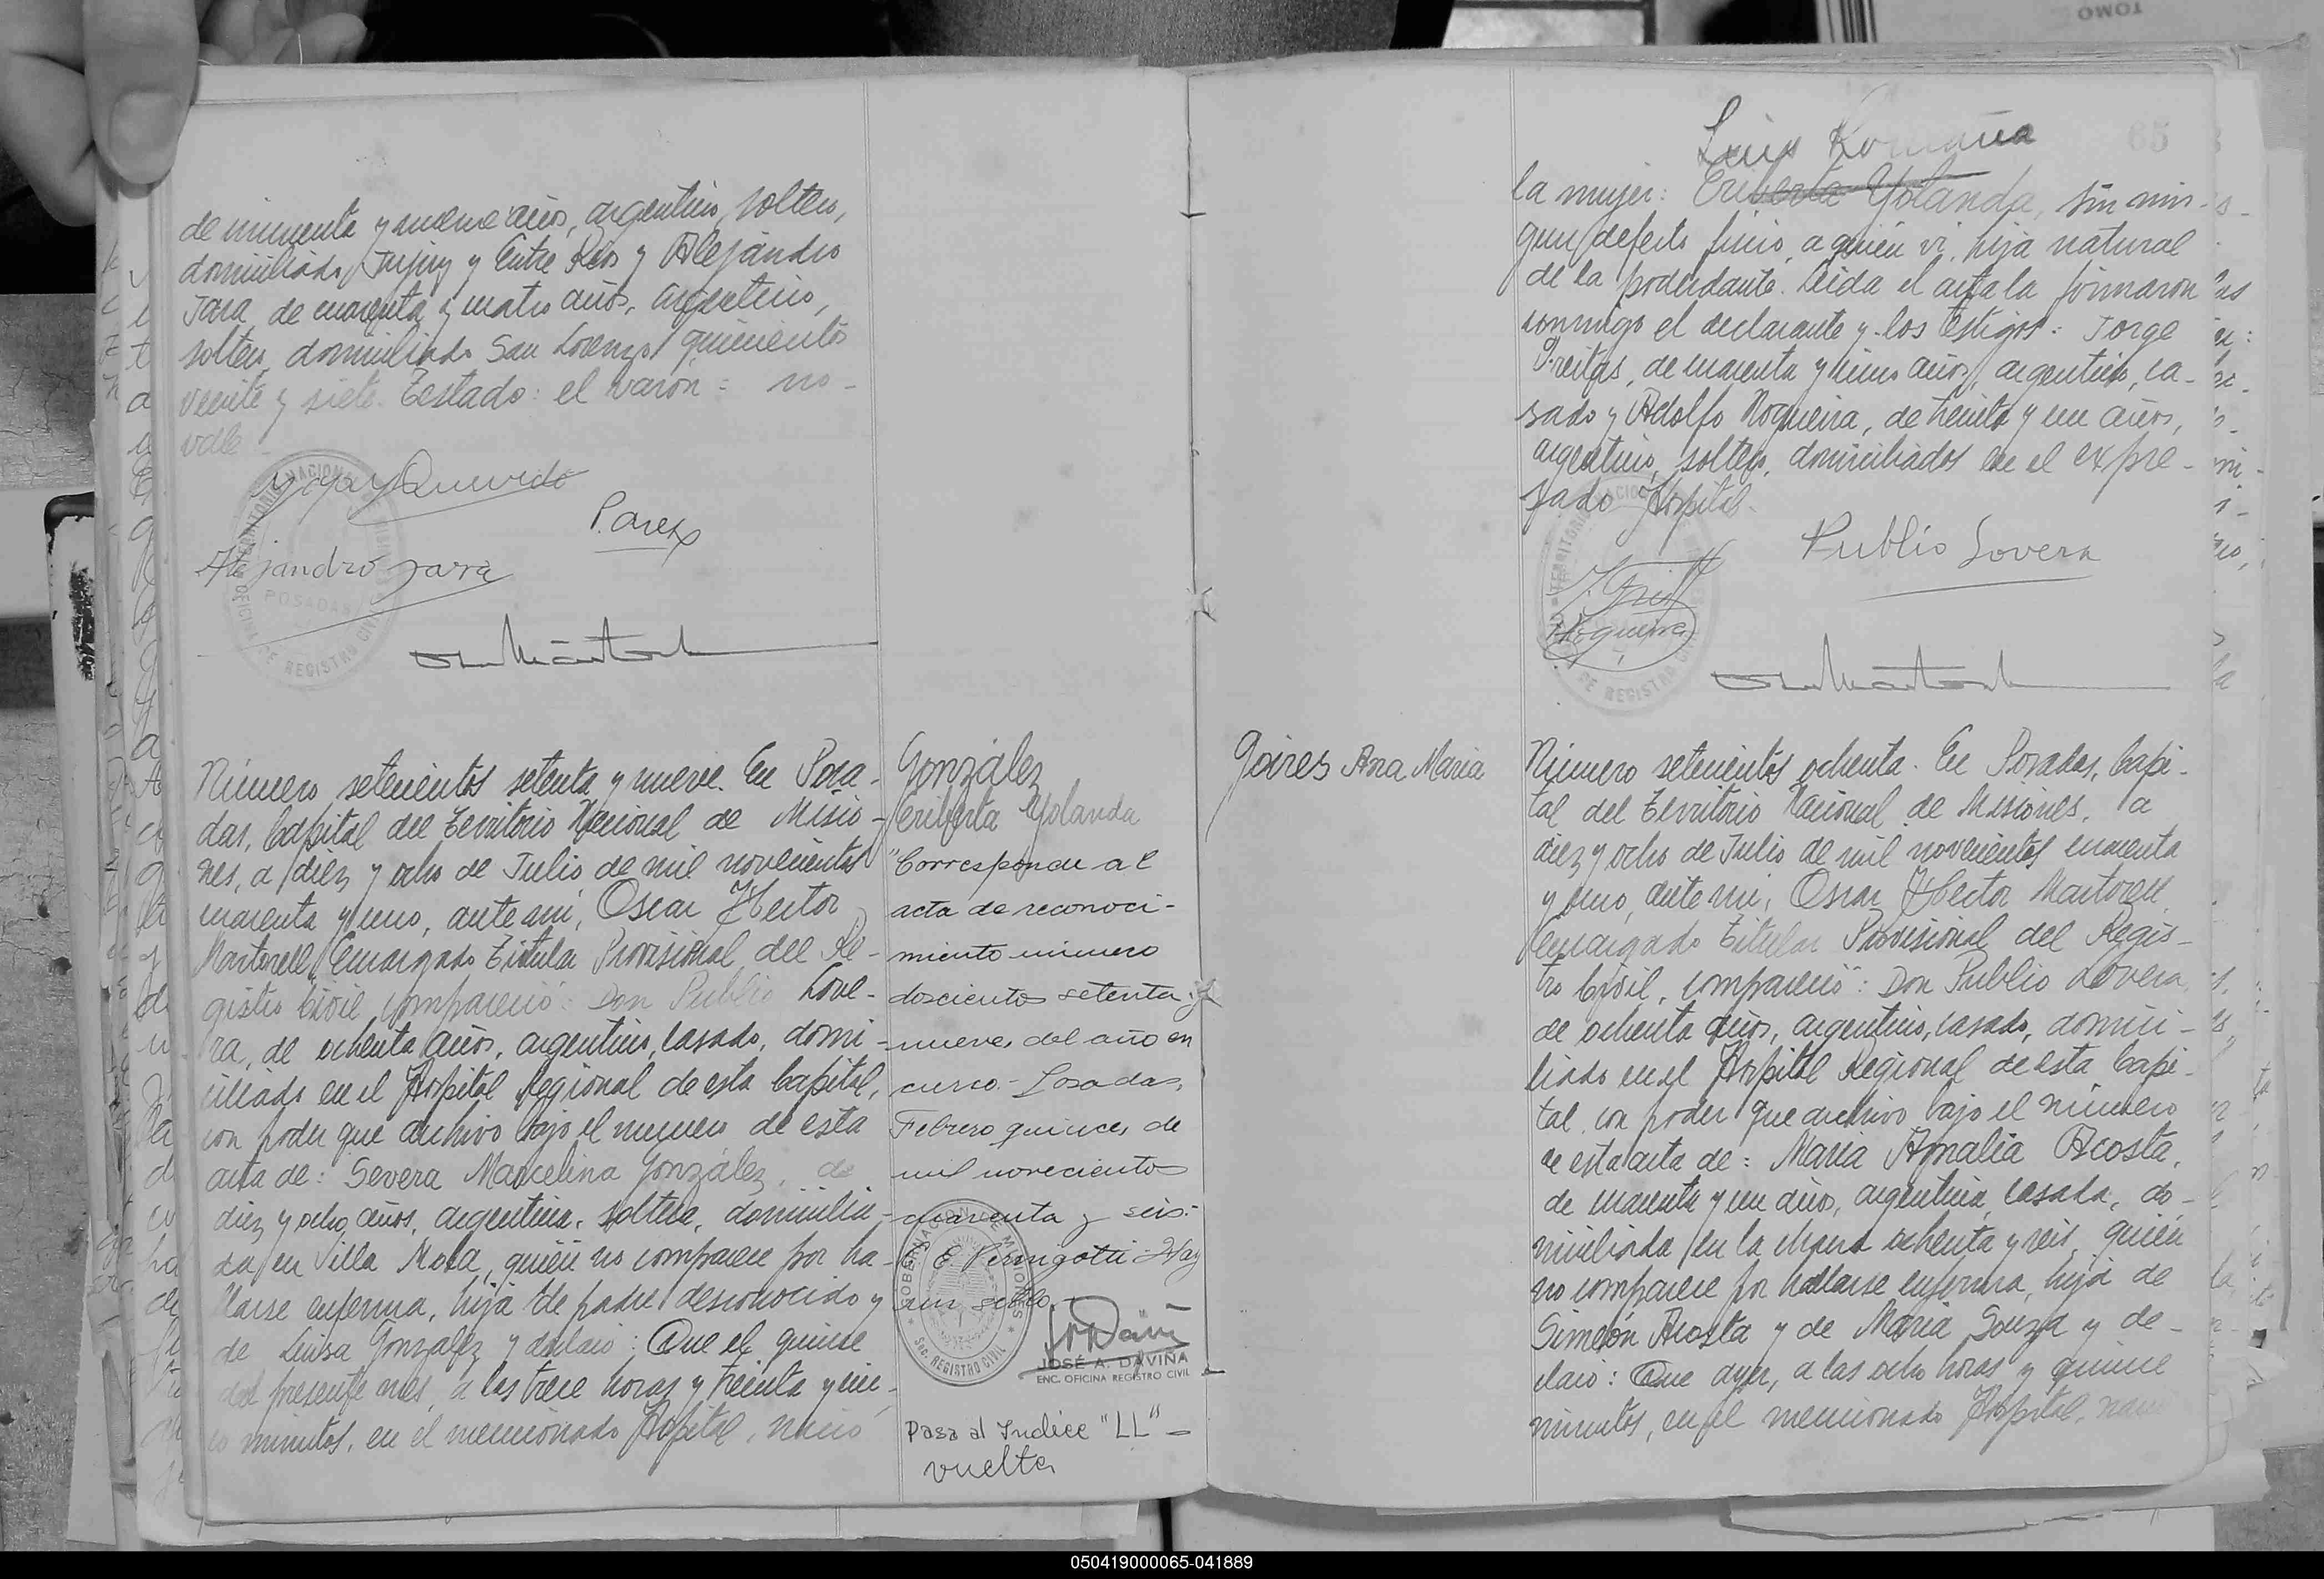 de cincuenta y nueve años, argentino, soltero,
domiciliado Jujuy y Entre Ríos y Alejandro
Jara, de cuarenta y cuatro años, argentino,
soltero, domiciliado San Lorenzo quinientos
veinte y siete. Testado: el varón: no-
vale
Alejandro Jara
POSADAS
Número setecientos setenta y nueve. En Posa-
das, Capital del Territorio Nacional de Misio-
nes, a diez y ocho de Julio de mil novecientos
cuarenta y uno, ante mi, Oscar Hector
Martorell Encargado Titular Provisional del Re-
gistro Civil compareció: Don Publio Love-
ra, de ochenta años, argentino, casado, domi-
ciliado en el Hospital Regional de esta Capital,
con poder que archivo bajo el numero de esta
acta de: Severa Marcelina González, de
diez y ocho años, argentina, soltera, domicilia-
da en Villa Mota, quién no comparece por ha-
llarse enferma, hija de padre desconocido y
de Luisa González y declaró: Que el quince
del presente mes, a las trece horas y treinta y cin-
co minutos, en el mencionado Hospital, nació
González
Eriberta Yolanda
"Corresponde al
acta de reconoci-
miento número
doscientos setenta y
nueve, del año en
curso.- Posadas,
Febrero quince, de
mil novecientos
cuarenta y seis.-
un sello.
GOBERNACION DE MISIONES
SEC. REGISTRO CIVIL
JOSÉ A. DAVIÑA
ENC. OFICINA REGISTRO CIVIL
Pasa al Indice "LL" -
vuelta
65
Luisa Romana
la mujer: Eriberta Yolanda, sin nin-
gun defecto físico, a quién vi, hija natural
de la poderdante. Leida el acta la firmaron
conmigo el declarante y los testigos: Jorge
Freitas, de cuarenta y cinco años, argentino, ca-
sado y Adolfo Nogueira, de treinta y un años,
argentino, soltero, domiciliados en el expre-
sado Hospital.
Publio Lovera
Nogueira
Goires Ana Maria
Número setecientos ochenta. En Posadas, Capi-
tal del Territorio Nacional de Misiones, a
diez y ocho de Julio de mil novecientos cuarenta
y uno, ante mi, Oscar Hector Martorell
Encargado Titular Provisional del Regis-
tro Civil, compareció: Don Publio Lovera
de ochenta años, argentino, casado, domici-
liado en el Hospital Regional de esta Capi-
tal, con poder que archivo bajo el número
de esta acta de: Maria Amalia Acosta,
de cuarenta y un años, argentina, casada, do-
miciliada en la chacra ochenta y seis, quién
no comparece por hallarse enferma, hija de
Simeón Acosta y de Maria Souza y de-
claró: Que ayer, a las ocho horas y quince
minutos, en el mencionado Hospital, nació
TOMO
050419000065-041889